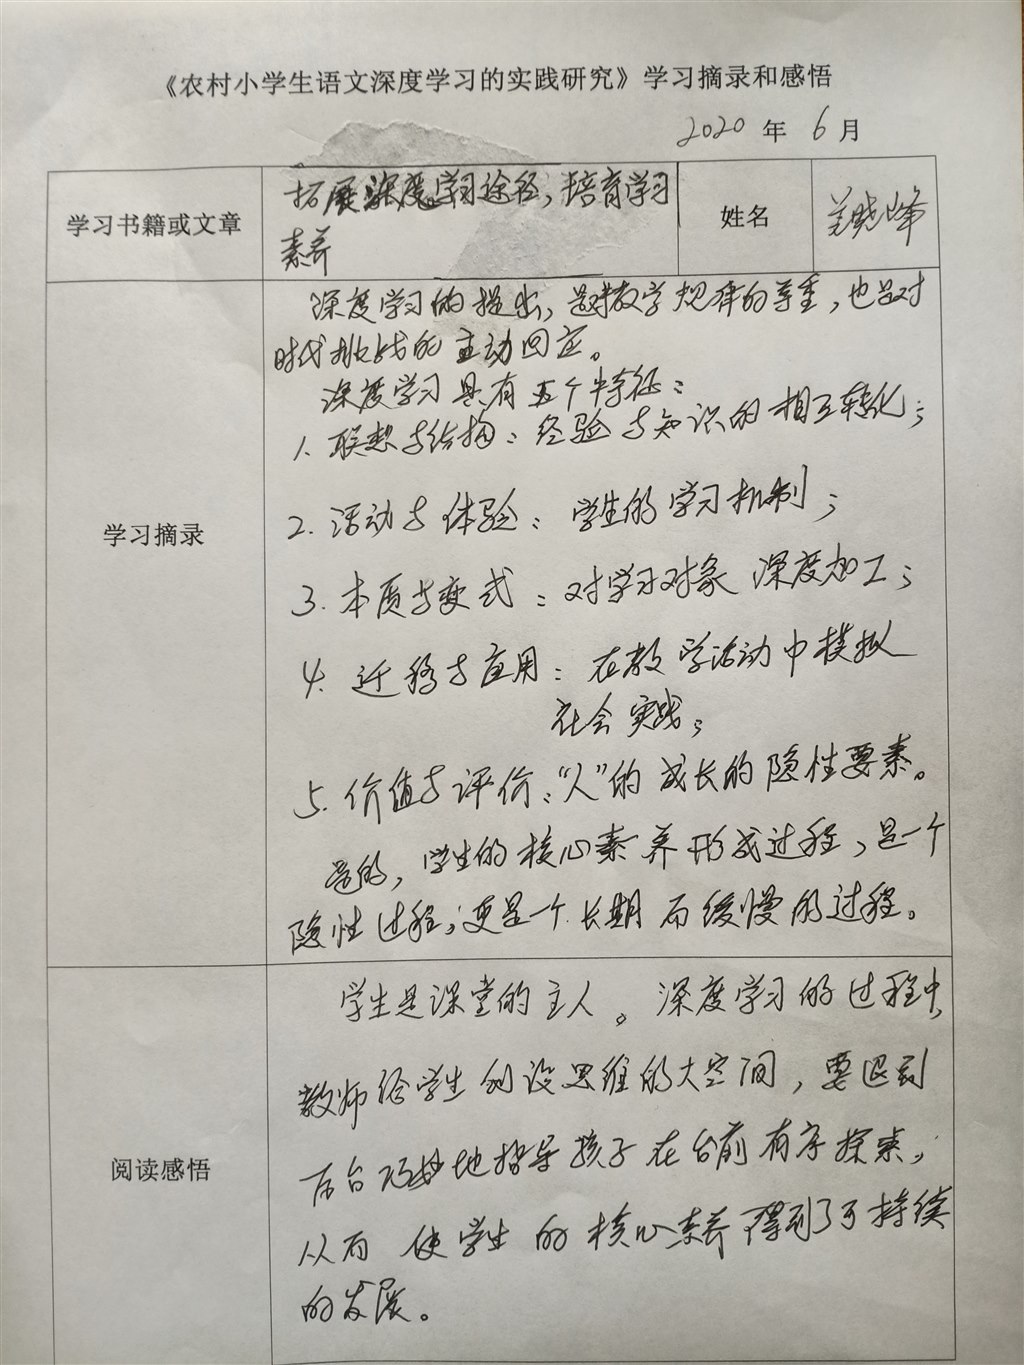 《农村小学生语文深度学习的实践研究》学习摘录和感悟
2020 年 6 月
学习书籍或文章
拓展深度学习途径，培育学习
素养
姓名
晓峰
学习摘录
深度学习的提出，是对教学规律的尊重，也是对
时代挑战的主动回应。
深度学习具有五个特征：
1. 联想与结构：经验与知识的相互转化；
2. 活动与体验：学生的学习机制；
3. 本质与变式：对学习对象深度加工；
4. 迁移与应用：在教学活动中模拟
社会实践；
5. 价值与评价：“人”的成长的隐性要素。
是的，学生的核心素养形成过程，是一个
隐性过程，更是一个长期而缓慢的过程。
阅读感悟
学生是课堂的主人。深度学习的过程中，
教师给学生创设思维的大空间，要退到
后台巧妙地指导孩子在台前有序探索，
从而使学生的核心素养得到了可持续
的发展。